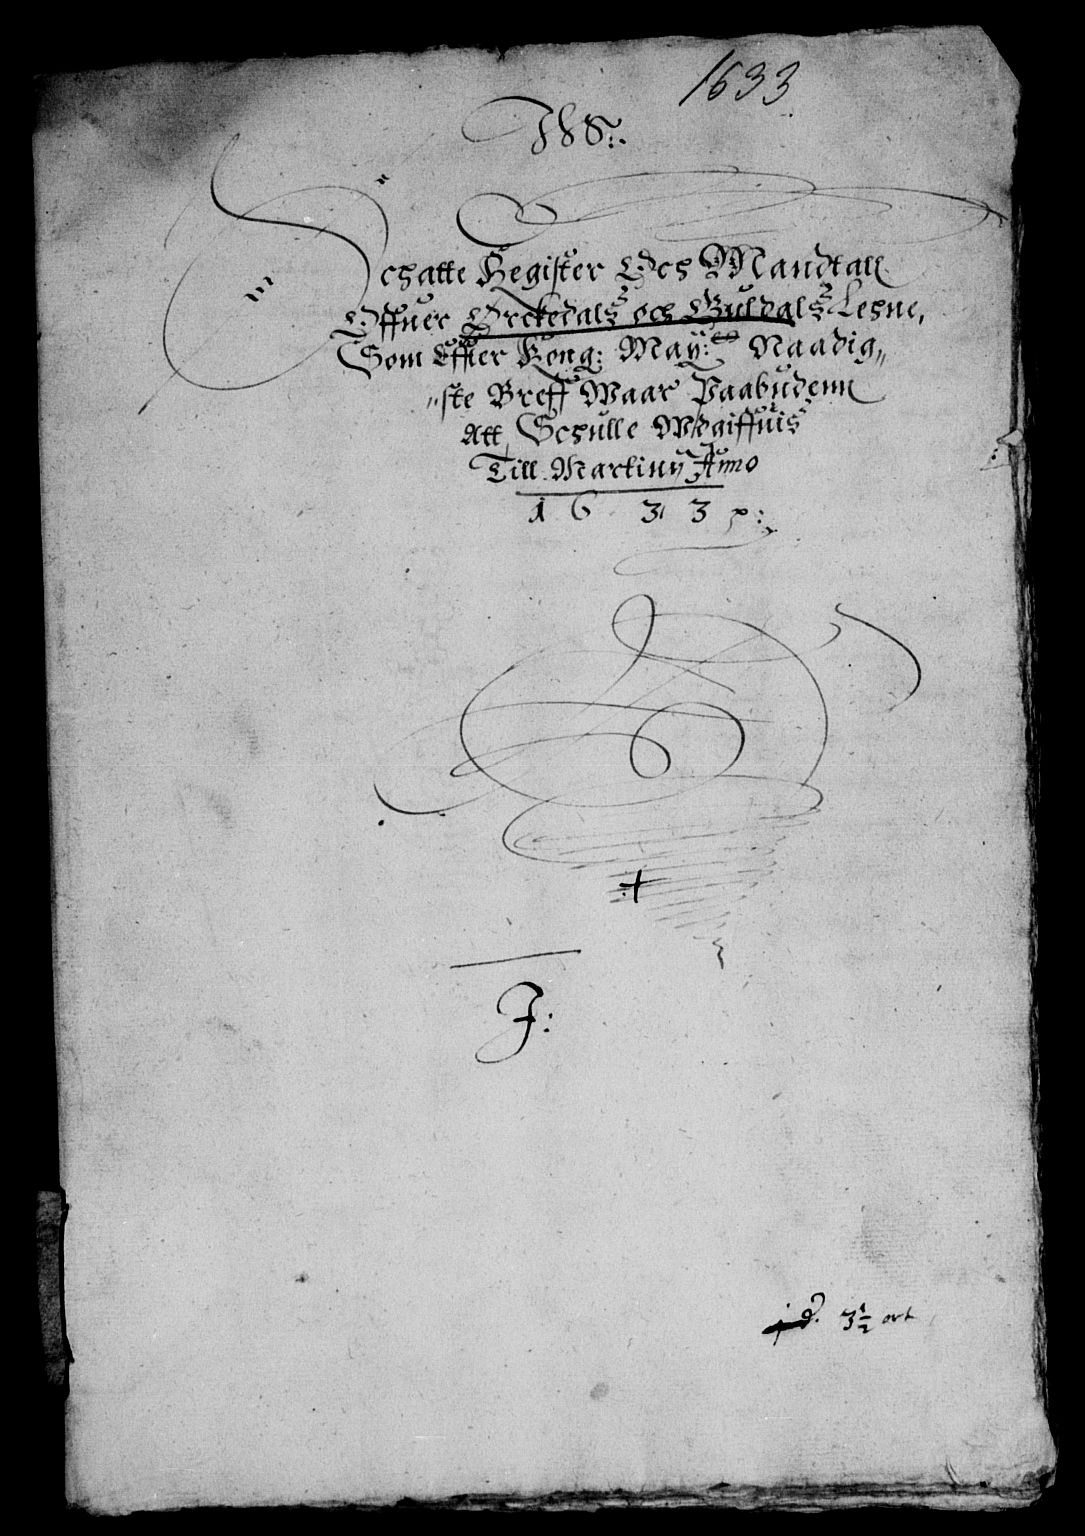 1633
IHS:
Schatte Register Och Mandtall
Offuer Orckedals och Guldals Lehne,
Som Effter Kong: May: Naadig„
„ste Breff Waar Paabudenn
Att Schulle Wdgiffuis
Till Martinij Anno
1633 p:
J:
3½ ort